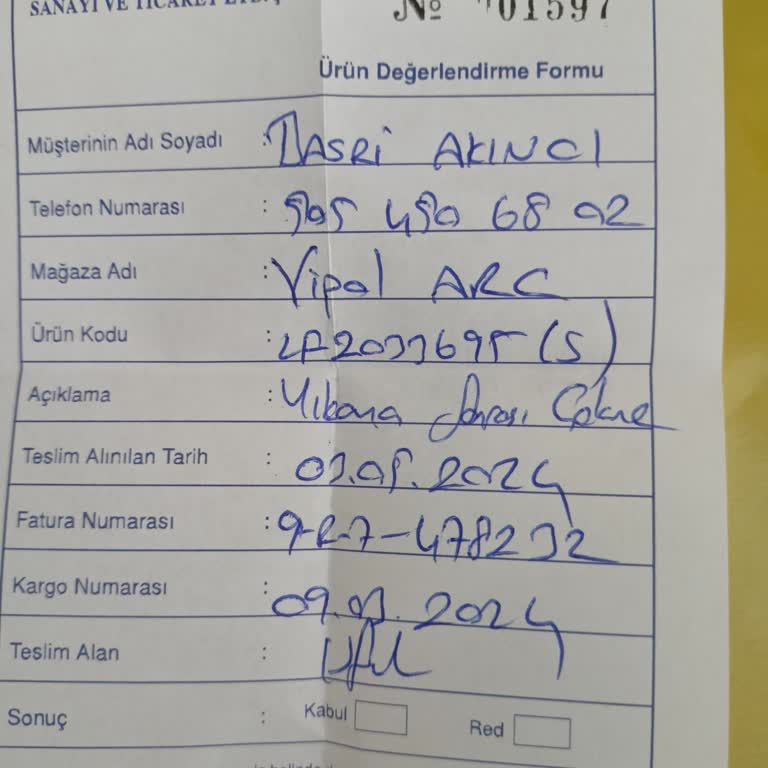 SANAYİ VE TİCARET LTD. Ş
№ 01597
Ürün Değerlendirme Formu
Müşterinin Adı Soyadı : AKINCI
Telefon Numarası : 505 450 68 02
Mağaza Adı : Vipol ARC
Ürün Kodu : LF2033695 (S)
Açıklama : Yıkama Sonrası Çekme
Teslim Alınılan Tarih : 03.05.2024
Fatura Numarası : 9-R-7-478232
Kargo Numarası : 09.03.2024
Teslim Alan :
Sonuç : Kabul Red